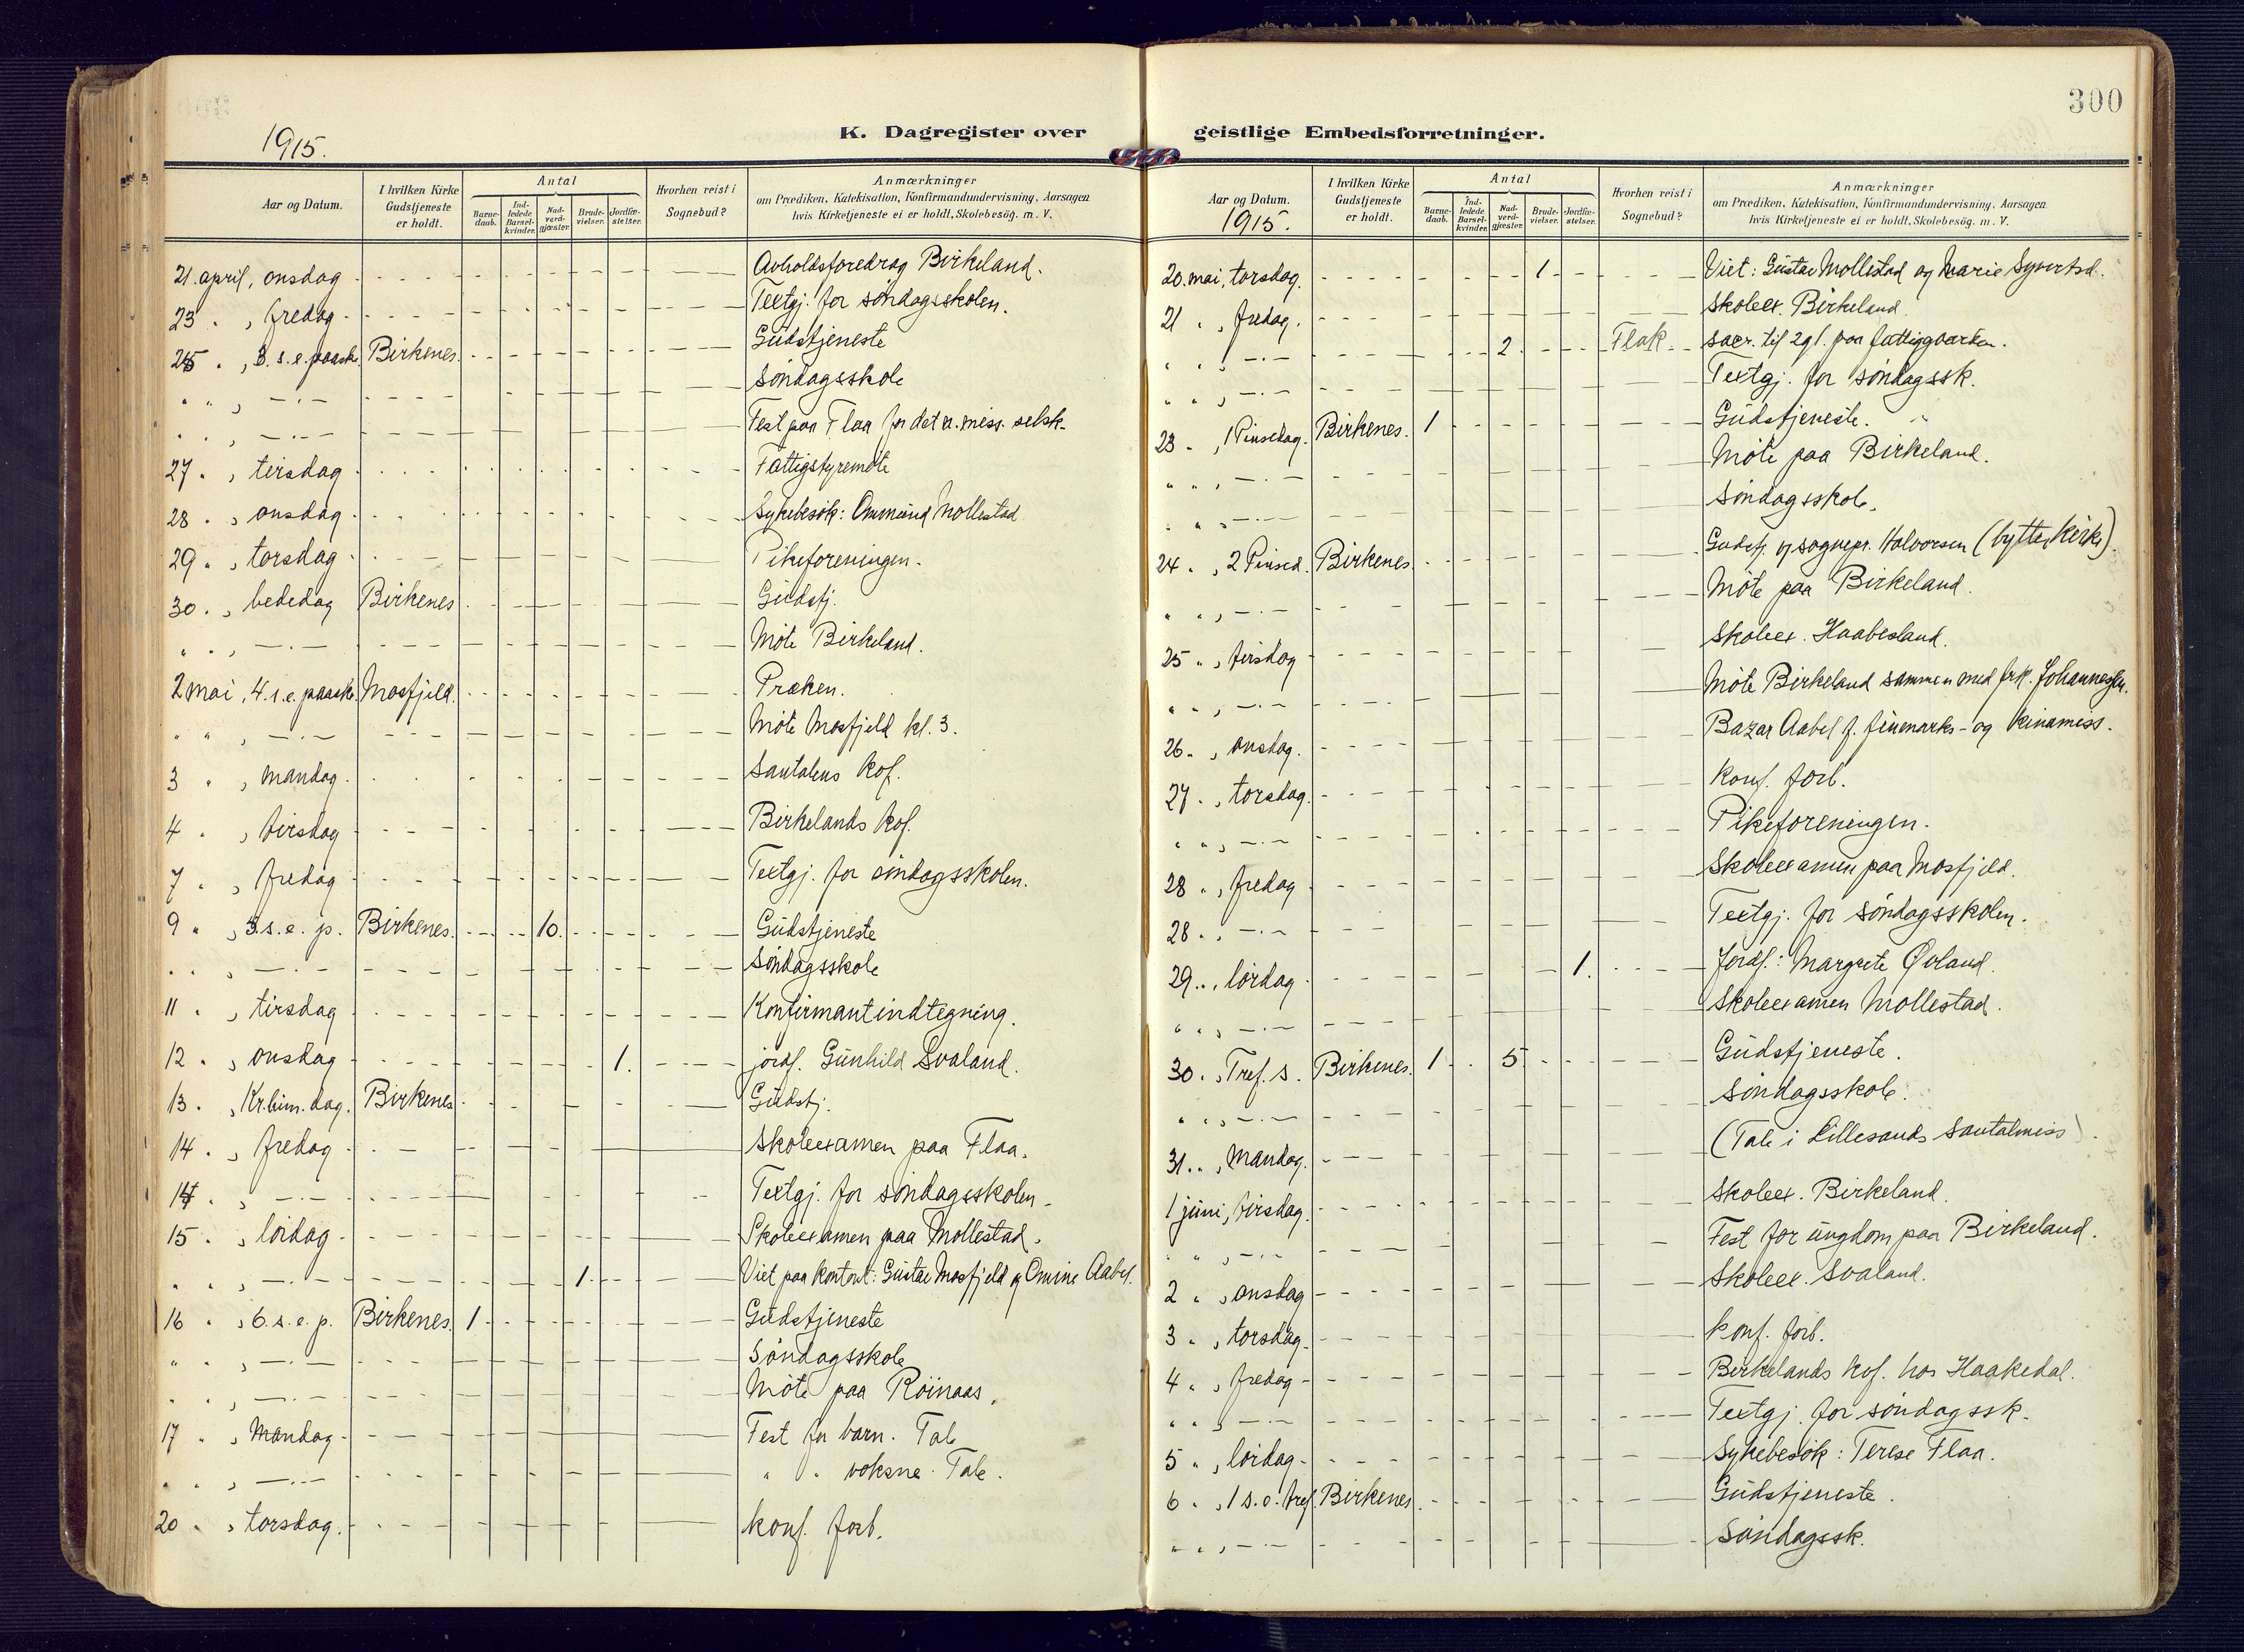 300
1915.
K. Dagregister over
Aar og Datum.
I hvilken Kirke Gudstjeneste er holdt.
Antal
Barne-daab.
Ind-ledede Barsel-kvinder.
Nad-verd-gjæster.
Brude-vielser.
Jordfæ-stelser.
Hvorhen reist i Sognebud?
Anmærkninger
om Prædiken, Katekisation, Konfirmandundervisning, Aarsagen
hvis Kirketjeneste ei er holdt, Skolebesög. m. V.
21. april, onsdag Avholdsforedrag Birkeland.
23 " , fredag Textgj. for søndagsskolen.
25 " , 3. s. e. paaske. Birkenes. Gudstjeneste
" " , —"— Søndagsskole
" " , —"— Fest paa Flaa for det n. miss. selsk.
27 " , tirsdag Fattigstyremøte
28 " , onsdag Sykebesøk: Ommund Mollestad
29 " , torsdag Pikeforeningen.
30 " , bededag Birkenes Gudstj.
" " , —"— Møte Birkeland.
2 mai, 4. s. e. paaske Mosfjeld. Præken.
" " , —"— Møte Mosfjeld kl. 3.
3 " , mandag Santalens kof.
4 " , tirsdag Birkelands kof.
7 " , fredag Textgj. for søndagsskolen.
9 " , 5. s. e. p. Birkenes. 10. Gudstjeneste
" " , —"— Søndagsskole
11 " , tirsdag Konfirmantindtegning.
12 " , onsdag 1. jordf. Gunhild Svaland.
13 " , Kr. him. dag. Birkenes Gudstj.
14 " , fredag Skoleexamen paa Flaa.
14 " , —"— Textgj. for søndagsskolen.
15 " , lørdag Skoleexamen paa Mollestad.
" " , —"— 1. Viet paa kontoret: Gustav Mosfjeld og Omine Aabel.
16 " , 6. s. e. p. Birkenes. 1 Gudstjeneste
" " , —"— Søndagsskole
" " , —"— Møte paa Röinaas.
17 " , Mandag Fest for barn. Tale
" " , —"— " " voksne. Tale.
20 " , torsdag. konf. forb.
geistlige Embedsforretninger.
Aar og Datum.
1915.
I hvilken Kirke Gudstjeneste er holdt.
Antal
Barne-daab.
Ind-ledede Barsel-kvinder.
Nad-verd-gjæster.
Brude-vielser.
Jordfæ-stelser.
Hvorhen reist i Sognebud?
Anmærkninger
om Prædiken, Katekisation, Konfirmandundervisning, Aarsagen
hvis Kirketjeneste ei er holdt, Skolebesög. m. V.
20. mai, torsdag. 1 Viet: Gustav Mollestad og Marie Syvertsd.
21 " , fredag. Skoleex. Birkeland.
" " , —"— 2 Flak sacr. til 2 gl. paa fattiggaarden.
" " , —"— Textgj. for søndagssk.
23 " , 1 Pinsedag. Birkenes. 1 Gudstjeneste.
" " , —"— Møte paa Birkeland.
" " , —"— Søndagsskole.
24 " , 2 Pinsed. Birkenes. Gudstj. v. sognepr. Halvorsen (byttet kirke)
" " , —"— Møte paa Birkeland.
25 " , tirsdag Skoleex. Haabesland.
" " , —"— Møte Birkeland sammen med frk. Johannessen.
26 " , onsdag. Bazar Aabel f. finmarks- og kinamiss.
27 " , torsdag. konf. forb.
" " , —"— Pikeforeningen.
28 " , fredag Skoleexamen paa Mosfjeld.
28 " , —"— Textgj. for søndagsskolen.
29 " , lørdag 1. Jordf.: Margrete Øvland.
" " , —"— Skoleexamen Mollestad.
30 " , Tref. s. Birkenes. 1 5 Gudstjeneste.
" " , —"— Søndagsskole.
31 " , Mandag. (Tale i Lillesands santalmiss).
1 juni, tirsdag. Skoleex. Birkeland.
" " , —"— Fest for ungdom paa Birkeland.
2 " , onsdag Skoleex. Svaland.
3 " , torsdag konf. forb.
4 " , fredag Birkelands kof. hos Haakedal.
" " , —"— Textgj. for søndagssk.
5 " , lørdag Sykebesøk: Terese Flaa.
6 " , 1 s. e. tref. Birkenes. Gudstjeneste.
" " , —"— Søndagssk.